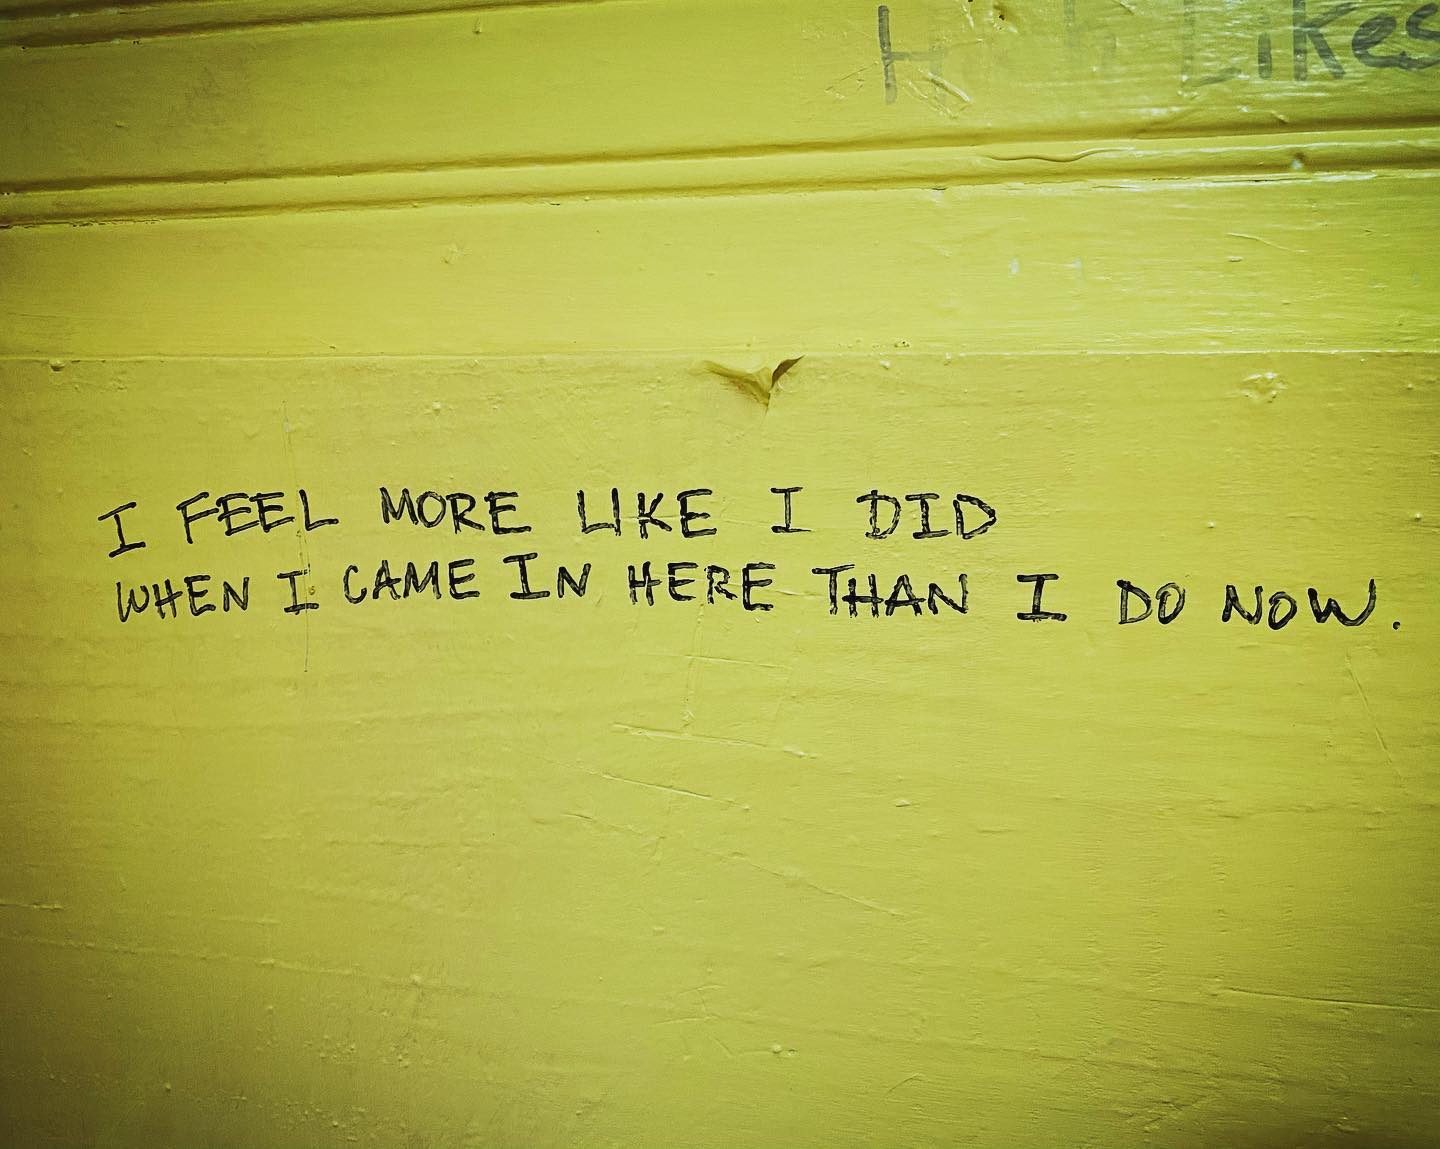 Likes
I FEEL MORE LIKE I DID
WHEN I CAME IN HERE THAN I DO NOW.